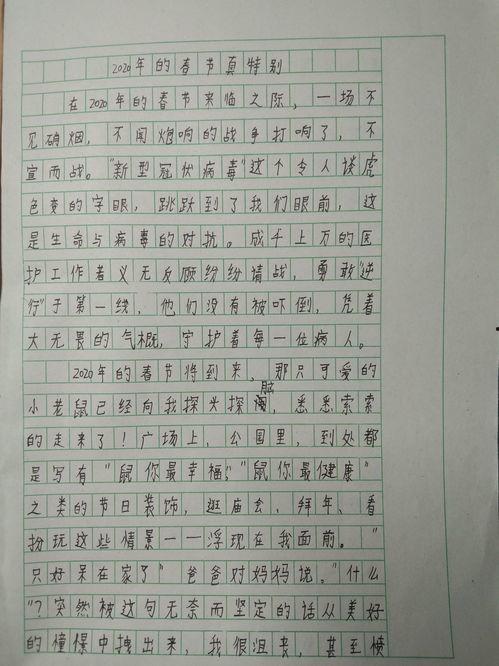 2020年的春节真特别
在2020年的春节来临之际，一场不
见硝烟，不闻炮响的战争打响了，不
宣而战。"新型冠状病毒"这个令人谈虎
色变的字眼，跳跃到了我们眼前，这
是生命与病毒的对抗。成千上万的医
护工作者义无反顾纷纷请战，勇敢"逆
行"于第一线，他们没有被吓倒，凭着
大无畏的气概，守护着每一位病人。
2020年的春节将到来，那只可爱的
小老鼠已经向我探头探脑，悉悉索索
的走来了！广场上，公园里，到处都
是写有"鼠你最幸福"，"鼠你最健康"
之类的节日装饰，逛庙会、拜年、看
扮玩这些情景一一浮现在我面前。"
只好呆在家了"爸爸对妈妈说。"什么
"？突然被这句无奈而坚定的话从美好
的憧憬中拽出来，我很沮丧，甚至愤